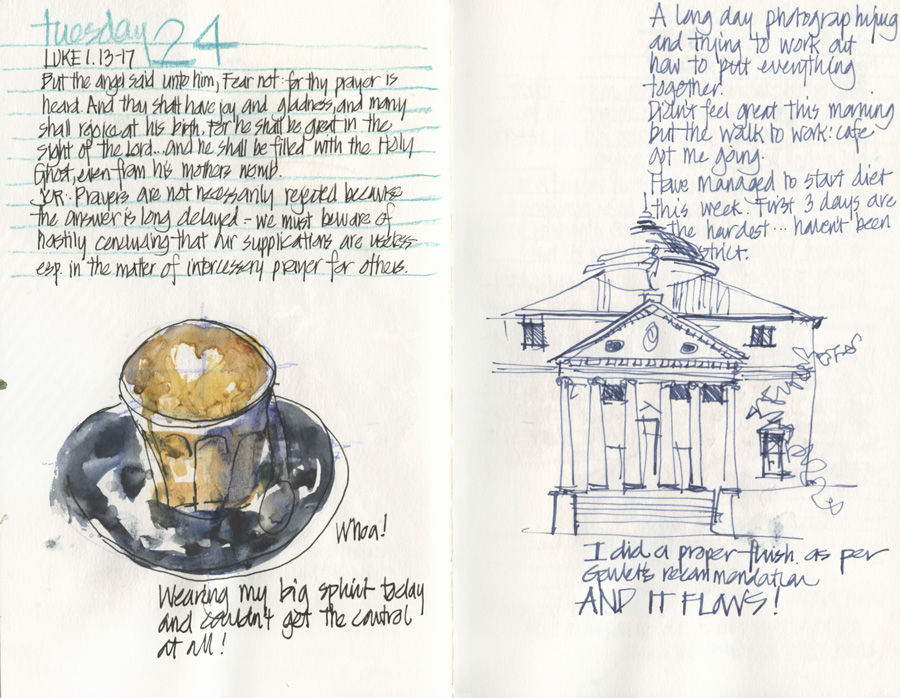 tuesday 24
LUKE 1. 13-17
But the angel said unto him, Fear not: for thy prayer is
heard. And thou shalt have joy and gladness, and many
shall rejoice at his birth. For he shall be great in the
sight of the Lord... and he shall be filled with the Holy
Ghost, even from his mothers womb.
Prayers are not necessarily rejected because
the answer is long delayed - we must beware of
hastily concluding that our supplications are useless
esp. in the matter of intercessory prayer for others.
Whoa!
Wearing my big splint today
and couldn't get the control
at all!
A long day photographing
and trying to work out
how to putt everything
together.
Didn't feel great this morning
but the walk to work: cafe
got me going.
Have managed to start diet
this week. First 3 days are
the hardest... haven't been
strict.
I did a proper flush as per
Goulet's recommendation
AND IT FLOWS!